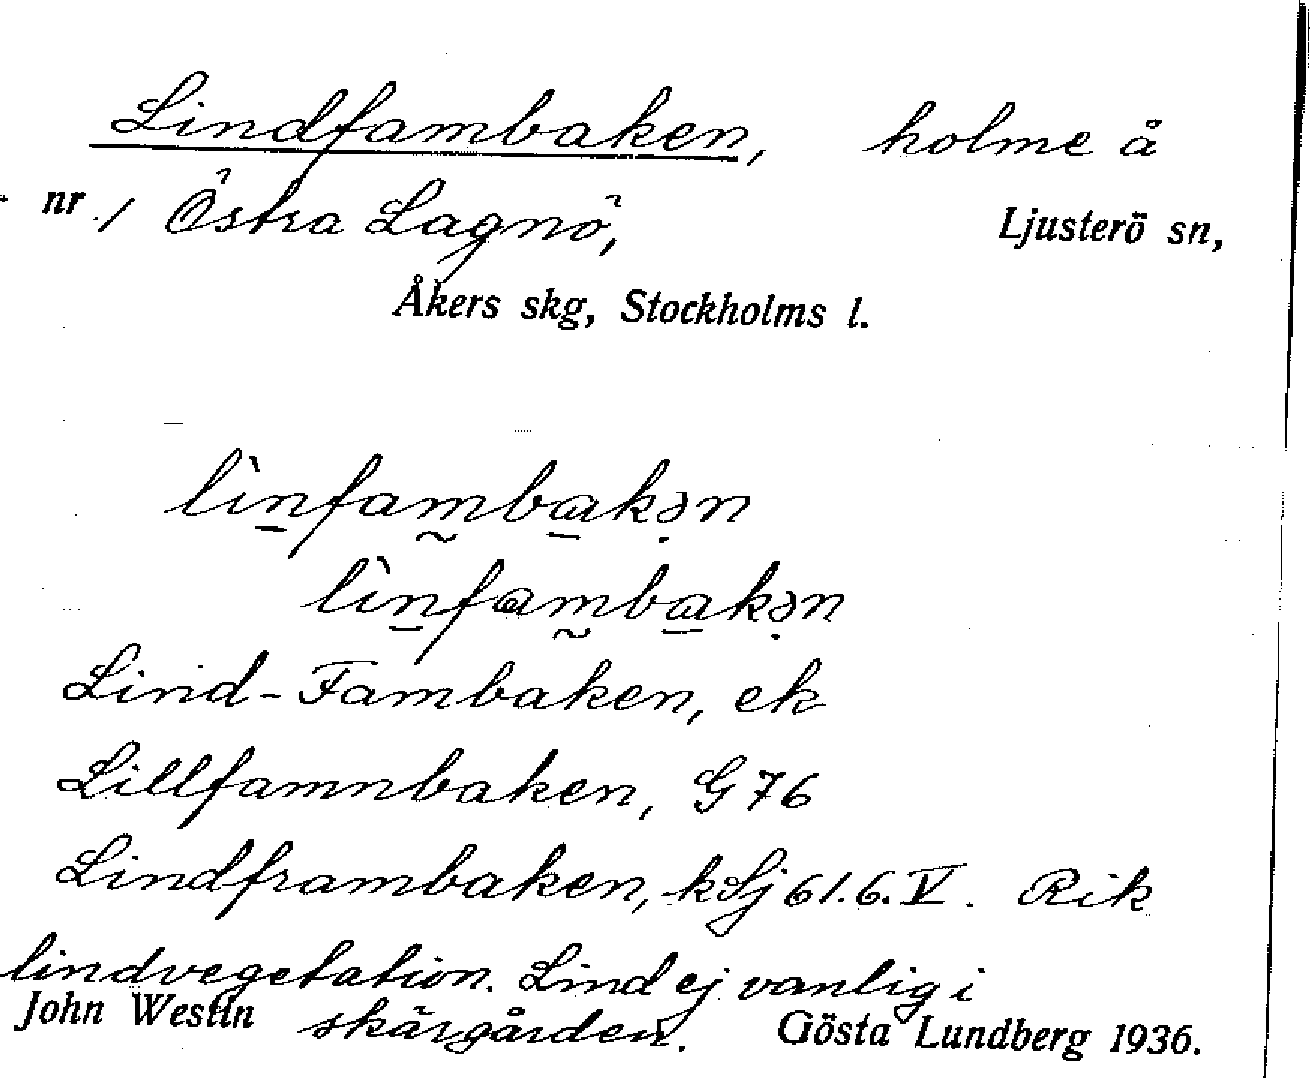 Lindfambaken, holme å
nr 1 Östra Lagnö, Ljusterö sn,
Åkers skg, Stockholms l.
lìn̲fam̰ba̲kə̣n
lìn̲fam̰ba̲kə̣n
Lind-Fambaken, ek
Lillfamnbaken, G 76
Lindframbaken, kSj 61.6.V. Rik
lindvegetation. Lind ej vanlig i
skärgården.
John Westin Gösta Lundberg 1936.